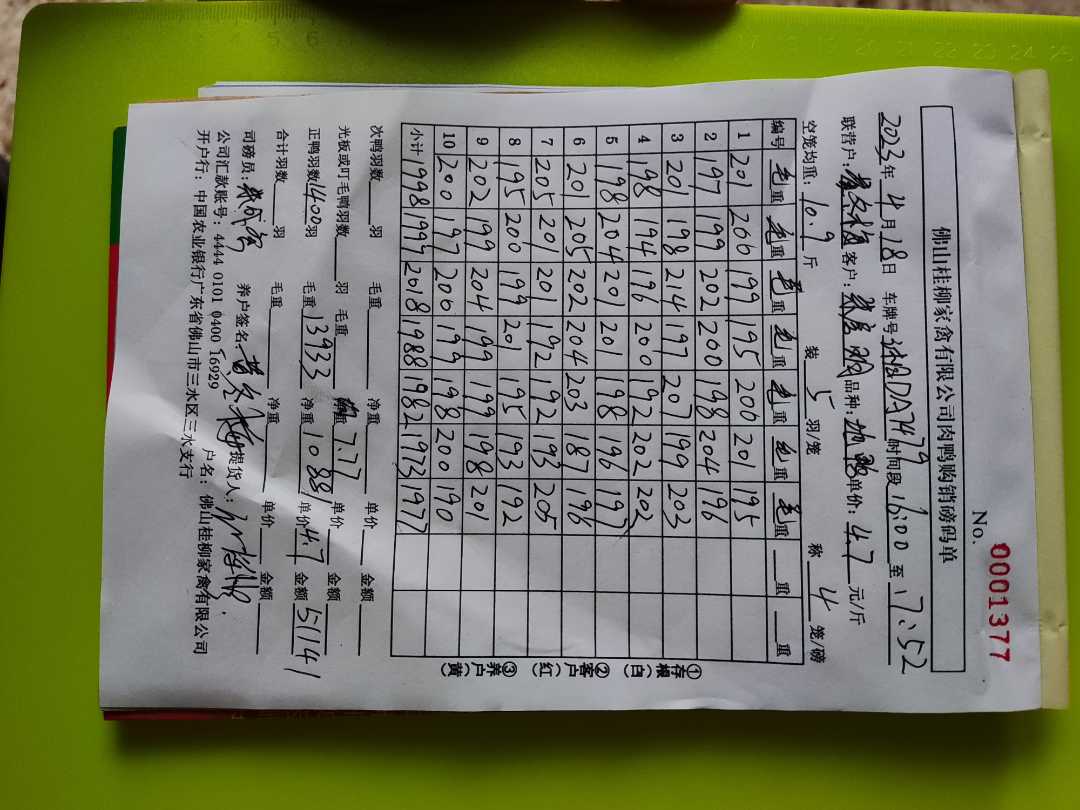 No. 0001377
佛山桂柳家禽有限公司肉鸭购销磅码单
2023年 4月 18日 车牌号 DA7479 时间段 16:00 至 17:52
联营户: 客户: 品种: 单价: 4.7 元/斤
空笼均重: 10.9 斤 装 5 羽/笼 称 4 笼/磅
编号 毛重 毛重 毛重 毛重 毛重 毛重 毛重 重 重
1 201 200 199 195 200 201 195
2 197 199 202 200 198 204 196
3 201 198 214 197 207 199 203
4 198 194 196 200 192 202 202
5 198 204 201 201 198 196 197
6 201 205 202 204 203 187 196
7 205 201 201 192 192 193 205
8 195 200 199 201 195 193 192
9 202 199 204 199 199 198 201
10 200 197 200 199 198 200 190
小计 1998 1997 2018 1988 1982 1973 1977
①存根(白) ②客户(红) ③养户(黄)
次鸭羽数 羽 毛重 净重 单价 金额
光板或叮毛鸭羽数 羽 毛重 7.77 单价 金额
正鸭羽数 1400 羽 毛重 13933 净重 10881 单价 4.7 金额 51141
合计羽数 羽 毛重 净重 单价 金额
司磅员: 养户签名: 提货人:
公司汇款账号: 4444 0101 0400 16929 户名: 佛山桂柳家禽有限公司
开户行: 中国农业银行广东省佛山市三水区三水支行